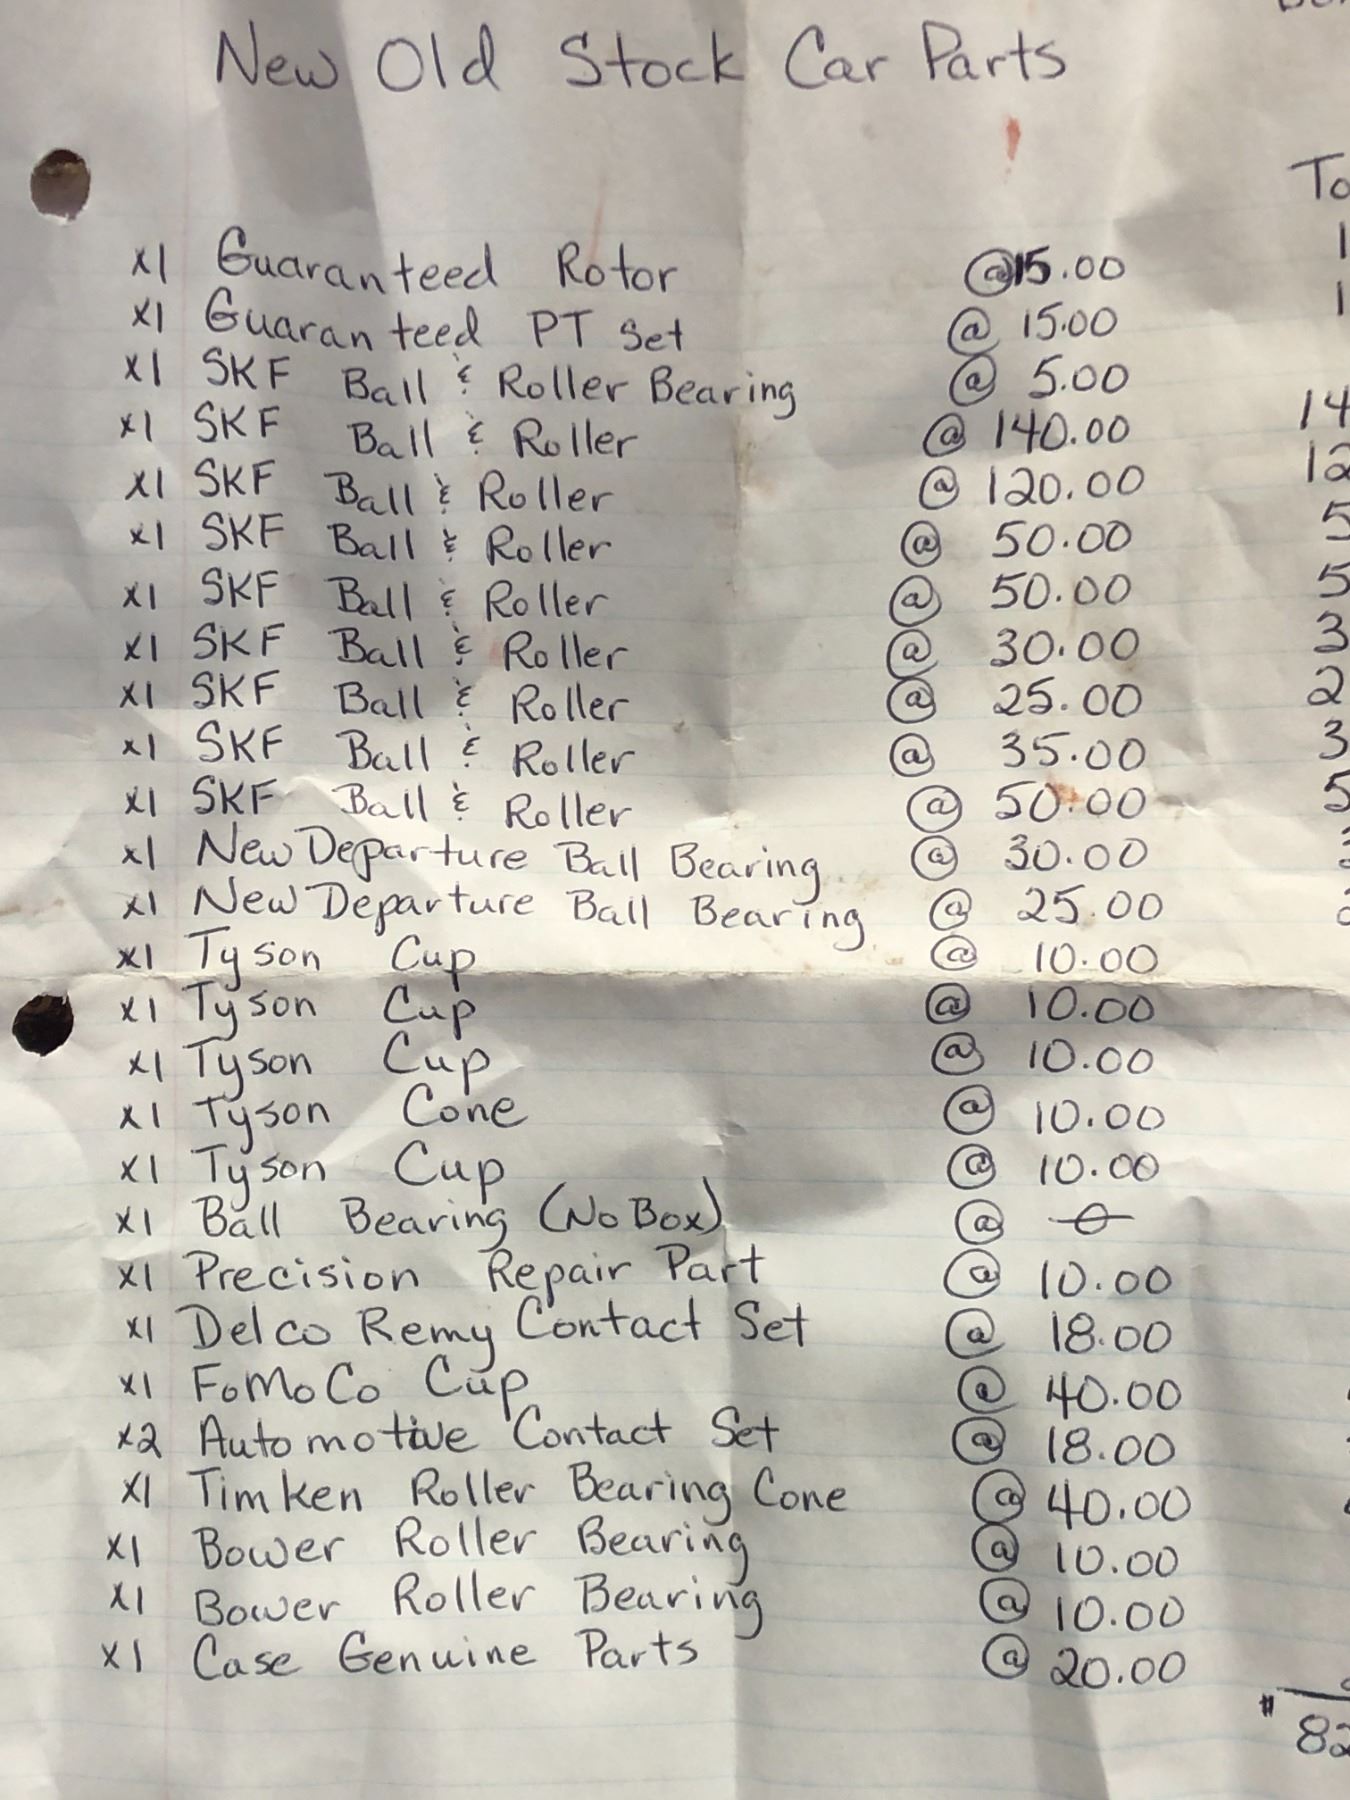 New Old Stock Car Parts
x1 Guaranteed Rotor @ 15.00
x1 Guaranteed PT Set @ 15.00
x1 SKF Ball & Roller Bearing @ 5.00
x1 SKF Ball & Roller @ 140.00
x1 SKF Ball & Roller @ 120.00
x1 SKF Ball & Roller @ 50.00
x1 SKF Ball & Roller @ 50.00
x1 SKF Ball & Roller @ 30.00
x1 SKF Ball & Roller @ 25.00
x1 SKF Ball & Roller @ 35.00
x1 SKF Ball & Roller @ 50.00
x1 New Departure Ball Bearing @ 30.00
x1 New Departure Ball Bearing @ 25.00
x1 Tyson Cup @ 10.00
x1 Tyson Cup @ 10.00
x1 Tyson Cup @ 10.00
x1 Tyson Cone @ 10.00
x1 Tyson Cup @ 10.00
x1 Ball Bearing (No Box) @ 0
x1 Precision Repair Part @ 10.00
x1 Delco Remy Contact Set @ 18.00
x1 FoMoCo Cup @ 40.00
x2 Automotive Contact Set @ 18.00
x1 Timken Roller Bearing Cone @ 40.00
x1 Bower Roller Bearing @ 10.00
x1 Bower Roller Bearing @ 10.00
x1 Case Genuine Parts @ 20.00